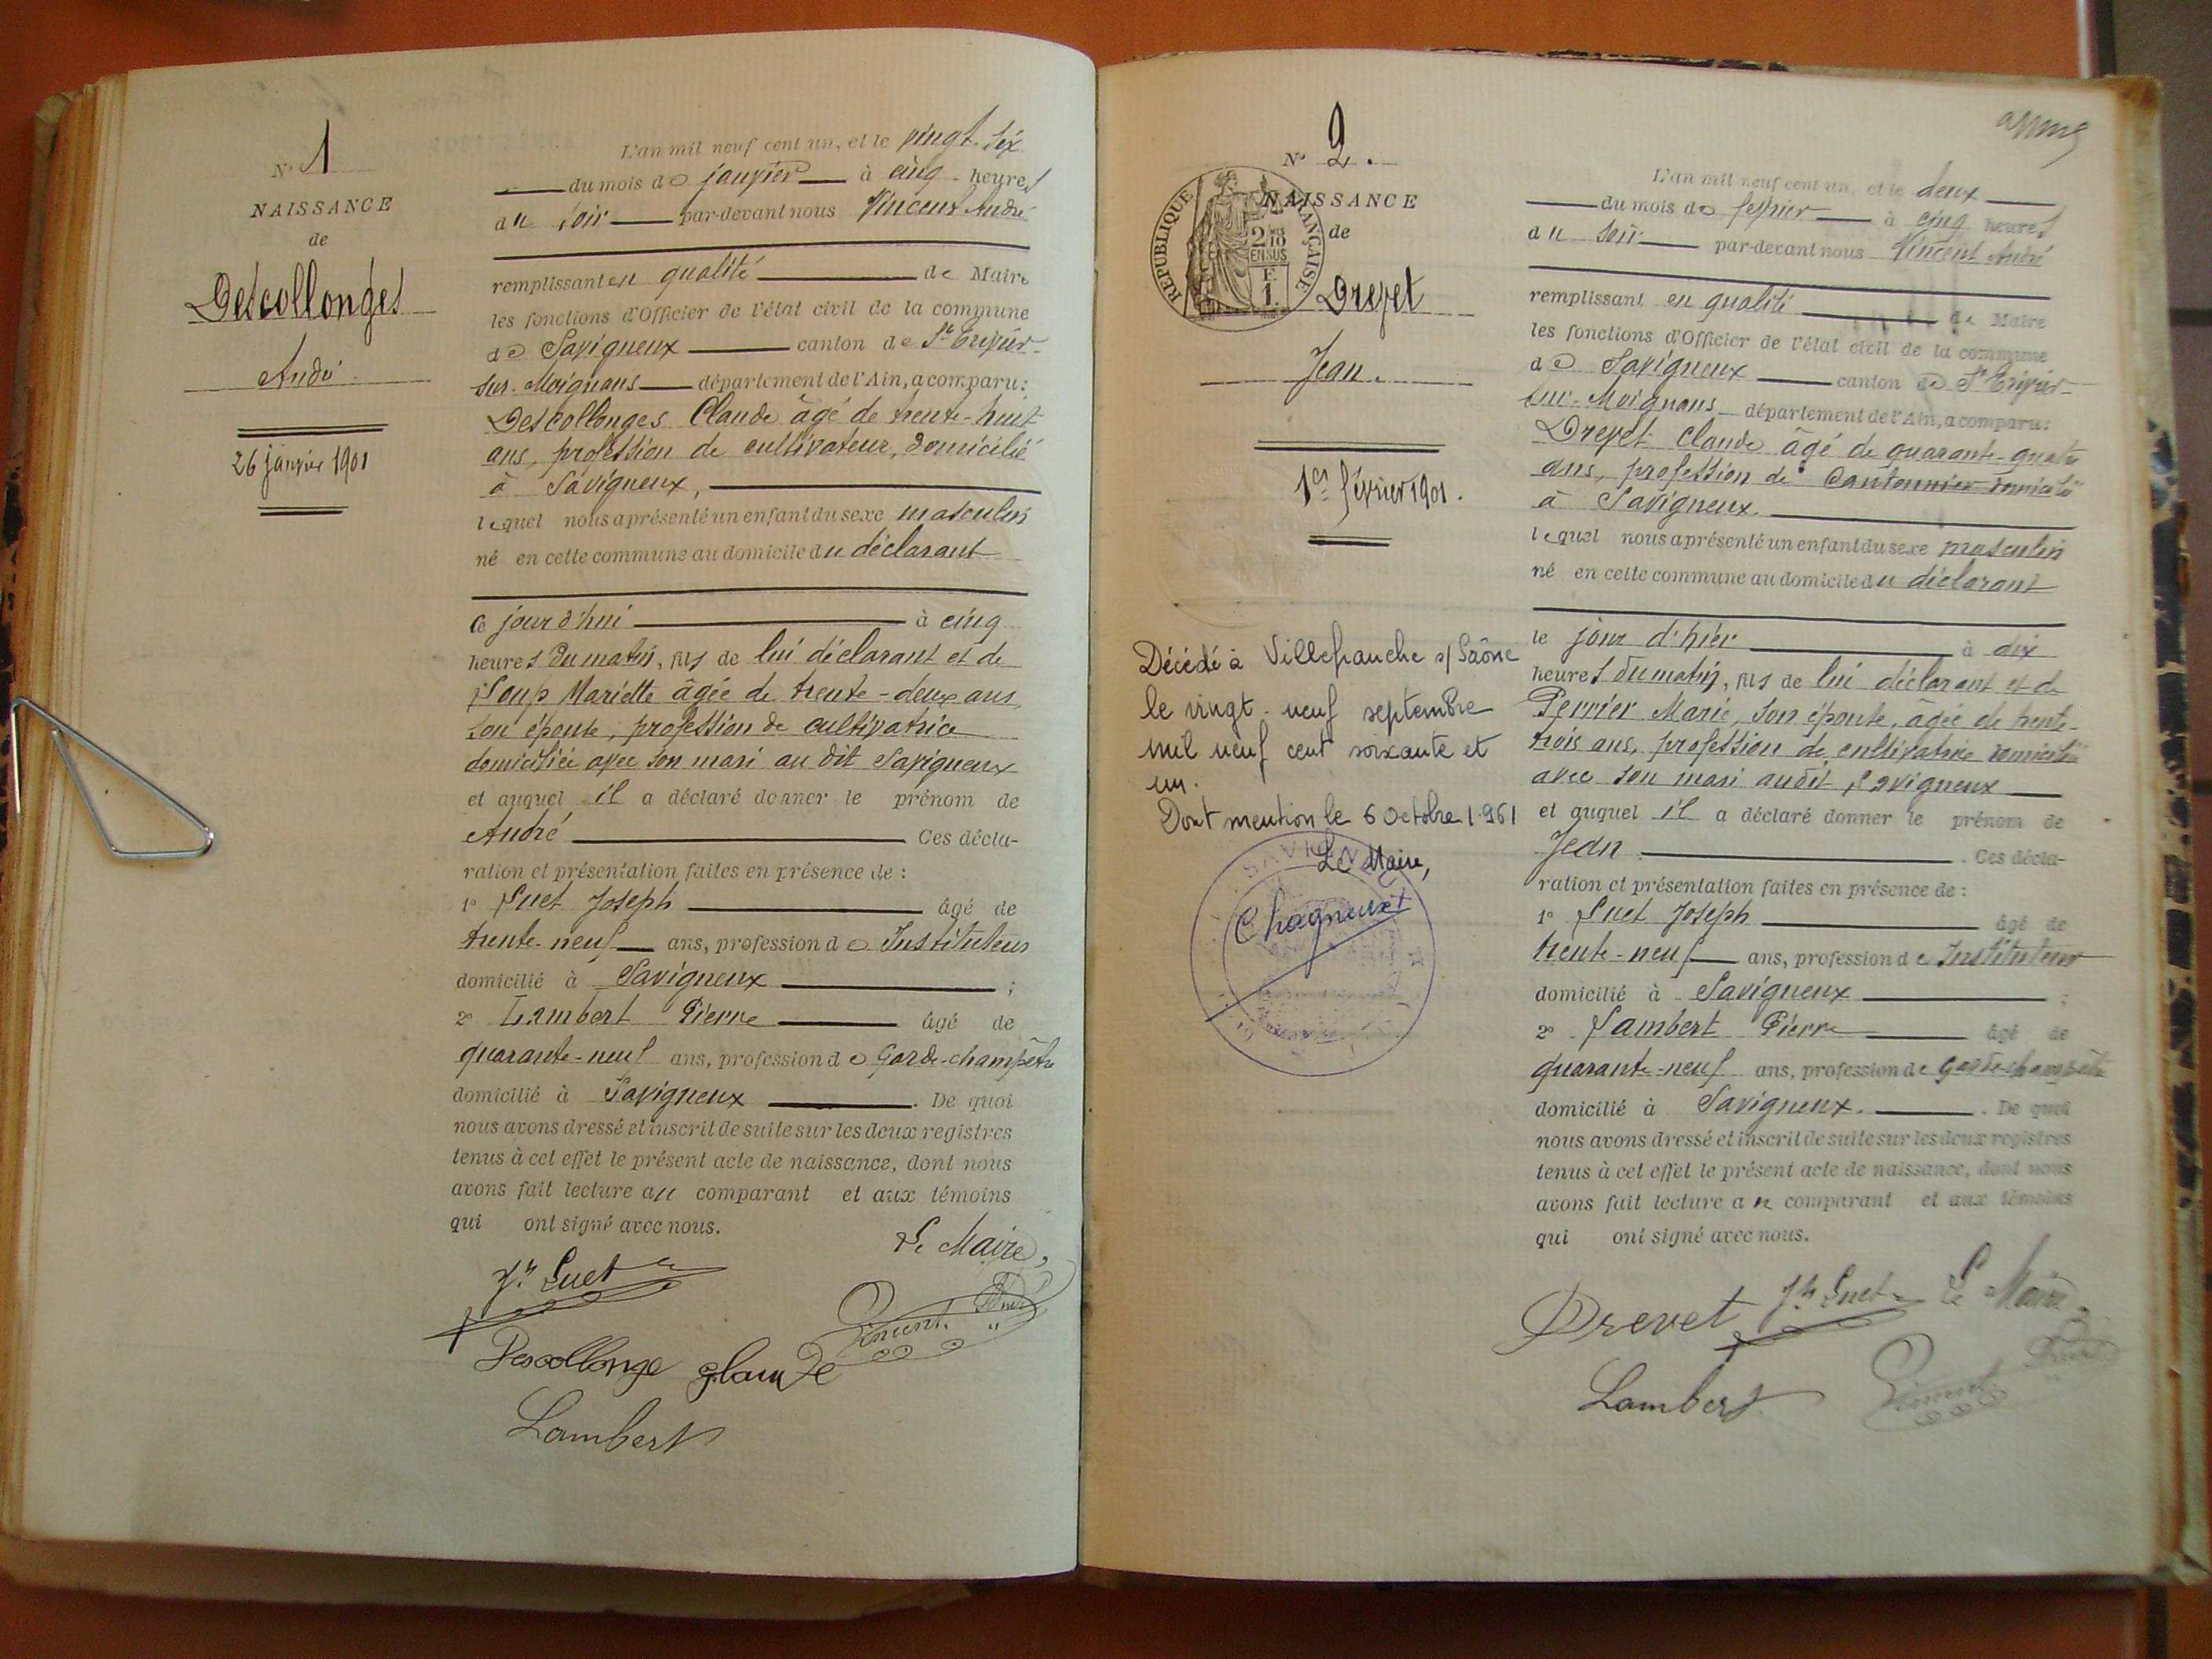 N° 1
NAISSANCE
de
Descollonges
André
26 janvier 1901
L'an mil neuf cent un, et le vingt-six
du mois de janvier à cinq heures
du soir par-devant nous Vincent André
remplissant en qualité de Maire
les fonctions d'Officier de l'état civil de la commune
de Savigneux canton de St Trivier-
sur-Moignans département de l'Ain, a comparu:
Descollonges Claude âgé de trente-huit
ans, profession de cultivateur, domicilié
à Savigneux,
lequel nous a présenté un enfant du sexe masculin
né en cette commune au domicile du déclarant
ce jourd'hui à cinq
heures du matin, fils de lui déclarant et de
Loup Mariette âgée de trente-deux ans,
son épouse, profession de cultivatrice
domiciliée avec son mari au dit Savigneux
et auquel il a déclaré donner le prénom de
André Ces décla-
ration et présentation faites en présence de :
1° Luet Joseph âgé de
trente-neuf ans, profession de Instituteur
domicilié à Savigneux ;
2° Lambert Pierre âgé de
quarante-neuf ans, profession de Garde-champêtre
domicilié à Savigneux . De quoi
nous avons dressé et inscrit de suite sur les deux registres
tenus à cet effet le présent acte de naissance, dont nous
avons fait lecture au comparant et aux témoins
qui ont signé avec nous.
Le Maire,
Jh Luet
Vincent André
Descollonge glaude
Lambert
N° 2.
NAISSANCE
de
RÉPUBLIQUE FRANÇAISE
2/10 EN SUS
F. 1.
Drevet
Jean.
1er février 1901.
Décédé à Villefranche s/ Saône
le vingt-neuf septembre
mil neuf cent soixante et
un.
Dont mention le 6 Octobre 1961
Le Maire,
Chagneux
L'an mil neuf cent un, et le deux
du mois de février à cinq heures
du soir par-devant nous Vincent André
remplissant en qualité de Maire
les fonctions d'Officier de l'état civil de la commune
de Savigneux canton de St Trivier-
sur-Moignans département de l'Ain, a comparu:
Drevet Claude âgé de quarante-quatre
ans, profession de Cantonnier domicilié
à Savigneux.
lequel nous a présenté un enfant du sexe masculin
né en cette commune au domicile du déclarant
le jour d'hier à dix
heures du matin, fils de lui déclarant et de
Perrier Marie, son épouse, âgée de trente-
trois ans, profession de cultivatrice domiciliée
avec son mari audit Savigneux
et auquel il a déclaré donner le prénom de
Jean . Ces décla-
ration et présentation faites en présence de :
1° Luet Joseph âgé de
trente-neuf ans, profession de Instituteur
domicilié à Savigneux ;
2° Lambert Pierre âgé de
quarante-neuf ans, profession de garde champêtre
domicilié à Savigneux. . De quoi
nous avons dressé et inscrit de suite sur les deux registres
tenus à cet effet le présent acte de naissance, dont nous
avons fait lecture au comparant et aux témoins
qui ont signé avec nous.
Drevet Jh Luet Le Maire
Lambert Vincent André